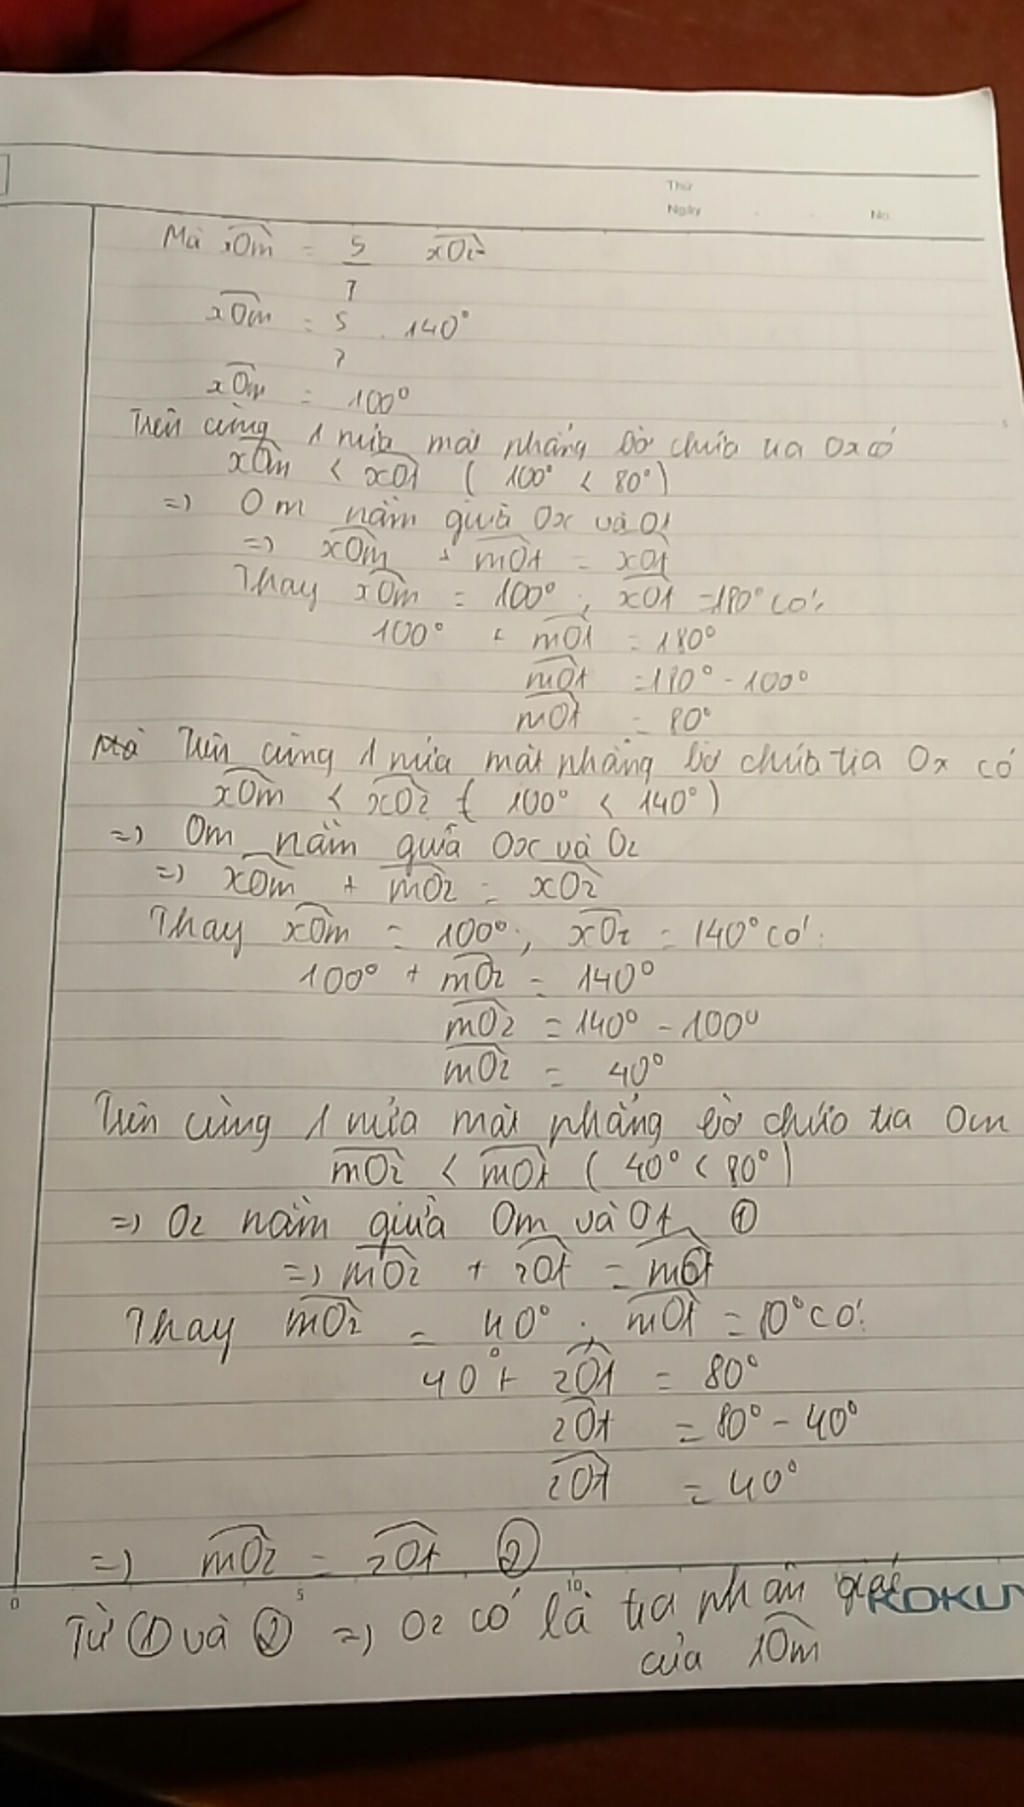 Thứ
Ngày No.
Mà xOm = 5/7 xOz
xOm = 5/7 . 140°
xOm = 100°
Trên cùng 1 nửa mặt phẳng bờ chứa tia Ox có
xOm < xOt ( 100° < 80° )
=> Om nằm giữa Ox và Ot
=> xOm + mOt = xOt
Thay xOm = 100° , xOt = 180° có:
100° + mOt = 180°
mOt = 180° - 100°
mOt = 80°
Trên cùng 1 nửa mặt phẳng bờ chứa tia Ox có
xOm < xOz ( 100° < 140° )
=> Om nằm giữa Ox và Oz
=> xOm + mOz = xOz
Thay xOm = 100° , xOz = 140° có:
100° + mOz = 140°
mOz = 140° - 100°
mOz = 40°
Trên cùng 1 nửa mặt phẳng bờ chứa tia Om
mOz < mOt ( 40° < 80° )
=> Oz nằm giữa Om và Ot ①
=> mOz + zOt = mOt
Thay mOz = 40° , mOt = 80° có:
40° + zOt = 80°
zOt = 80° - 40°
zOt = 40°
=> mOz = zOt ②
0 5 10
Từ ① và ② => Oz có là tia phân giác
của tOm